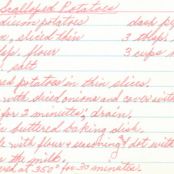 Scalloped Potatoes
medium potatoes dash pe
, sliced thin 3 tblsp.
lsp. flour 3 cups
. salt
potatoes in thin slices.
with diced onions and cover with
for 2 minutes; drain.
buttered baking dish.
with flour & seasoning & dot with
the milk.
at 350° for 30 minutes.